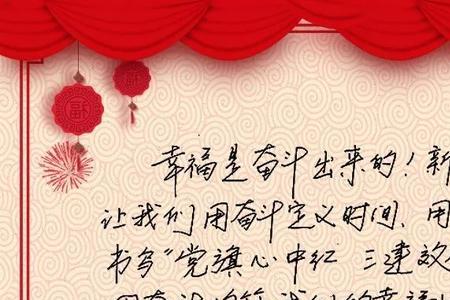 福
幸福是奋斗出来的！新
让我们用奋斗定义时间、用
书写“党旗心中红 三建效